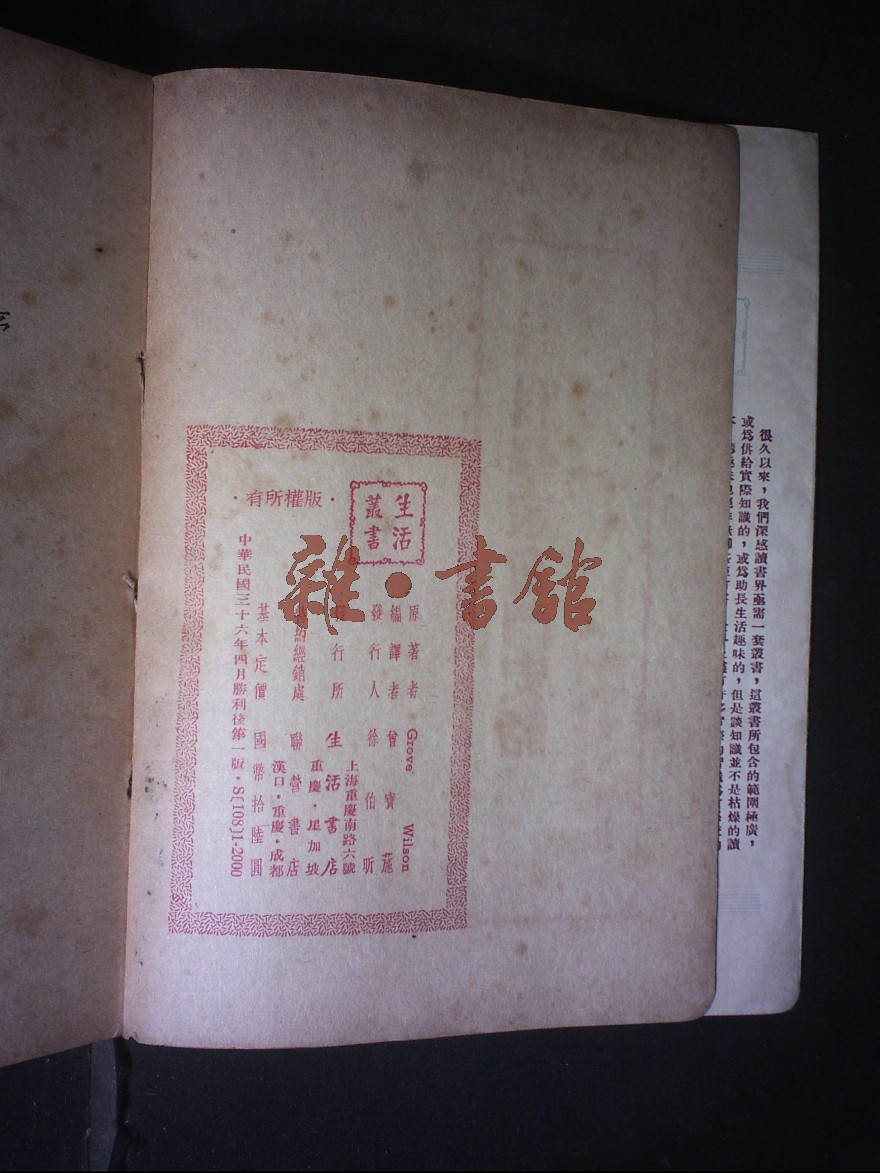 生活
叢書
·版權所有·
原著者 Grove Wilson
編譯者 曾寶葹
發行人 徐伯昕
發行所 生活書店
上海重慶南路六號
重慶·星加坡
特約經銷處 聯營書店
漢口·重慶·成都
基本定價 國幣拾陸圓
中華民國三十六年四月勝利後第一版·S(108)1-2000
雜·書館
很久以來,我們深感讀書界亟需一套叢書,這叢書所包含的範圍極廣,
或爲供給實際知識的,或爲助長生活趣味的,但是談知識並不是枯燥的讀